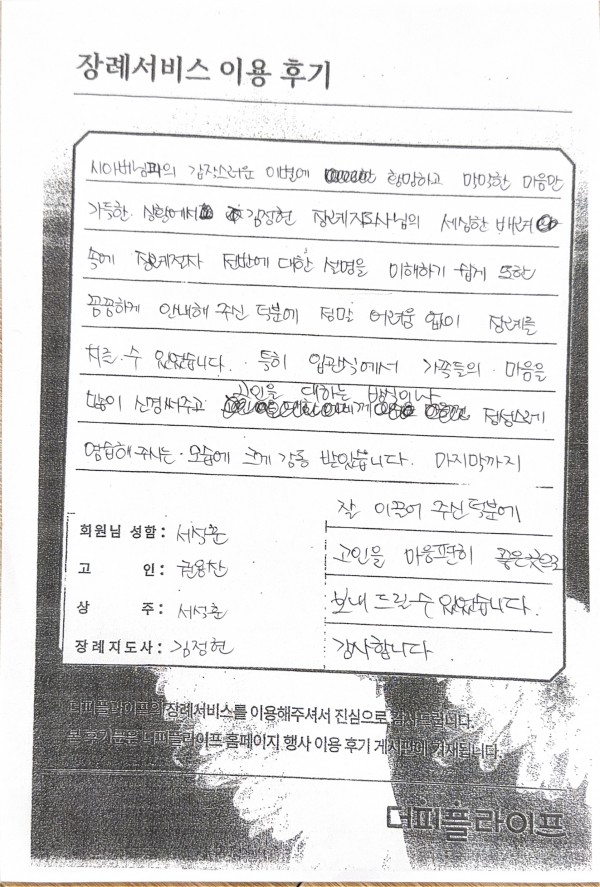 장례서비스 이용 후기
시아버님과의 갑작스러운 이별에 황망하고 막막한 마음만
가득한 상황에서 김정현 장례지도사님의 세심한 배려
속에 장례절차 전반에 대한 설명을 이해하기 쉽게 또한
꼼꼼하게 안내해 주신 덕분에 정말 어려움 없이 장례를
치를 수 있었습니다. 특히 입관식에서 가족들의 마음을
고인을 대하는 방식이나
많이 신경써주고 정성스레
염습해주시는 모습에 크게 감동 받았습니다. 마지막까지
잘 이끌어 주신 덕분에
고인을 마음편히 좋은곳으로
보내 드릴 수 있었습니다.
감사합니다
회원님 성함: 서석훈
고 인: 권용찬
상 주: 서석훈
장례지도사: 김정현
더피플라이프의 장례서비스를 이용해주셔서 진심으로 감사드립니다.
본 후기글은 더피플라이프 홈페이지 행사 이용 후기 게시판에 기재됩니다.
더피플라이프